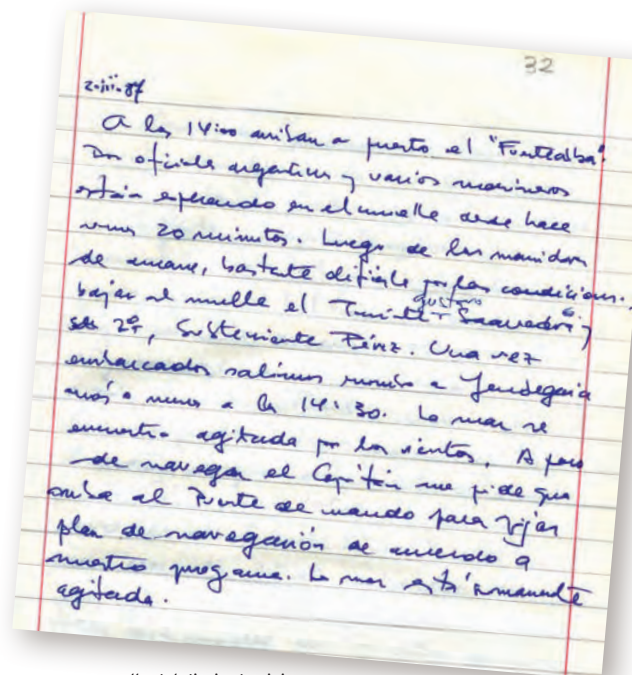 32
2-iii-87
A las 14:00 arriban a puerto el "Fuentealba".
Dos oficiales argentinos y varios marineros
están esperando en el muelle desde hace
unos 20 minutos. Luego de las maniobras
de amarre, bastante difíciles por las condiciones,
bajan al muelle el Teniente Gustavo Saavedra G. y
su 2º, Subteniente Pérez. Una vez
embarcados salimos rumbo a Yendegaia
más o menos a las 14:30. La mar se
encuentra agitada por los vientos. A poco
de navegar el Capitán me pide que
suba al Puente de mando para fijar
plan de navegación de acuerdo a
nuestro programa. La mar está sumamente
agitada.